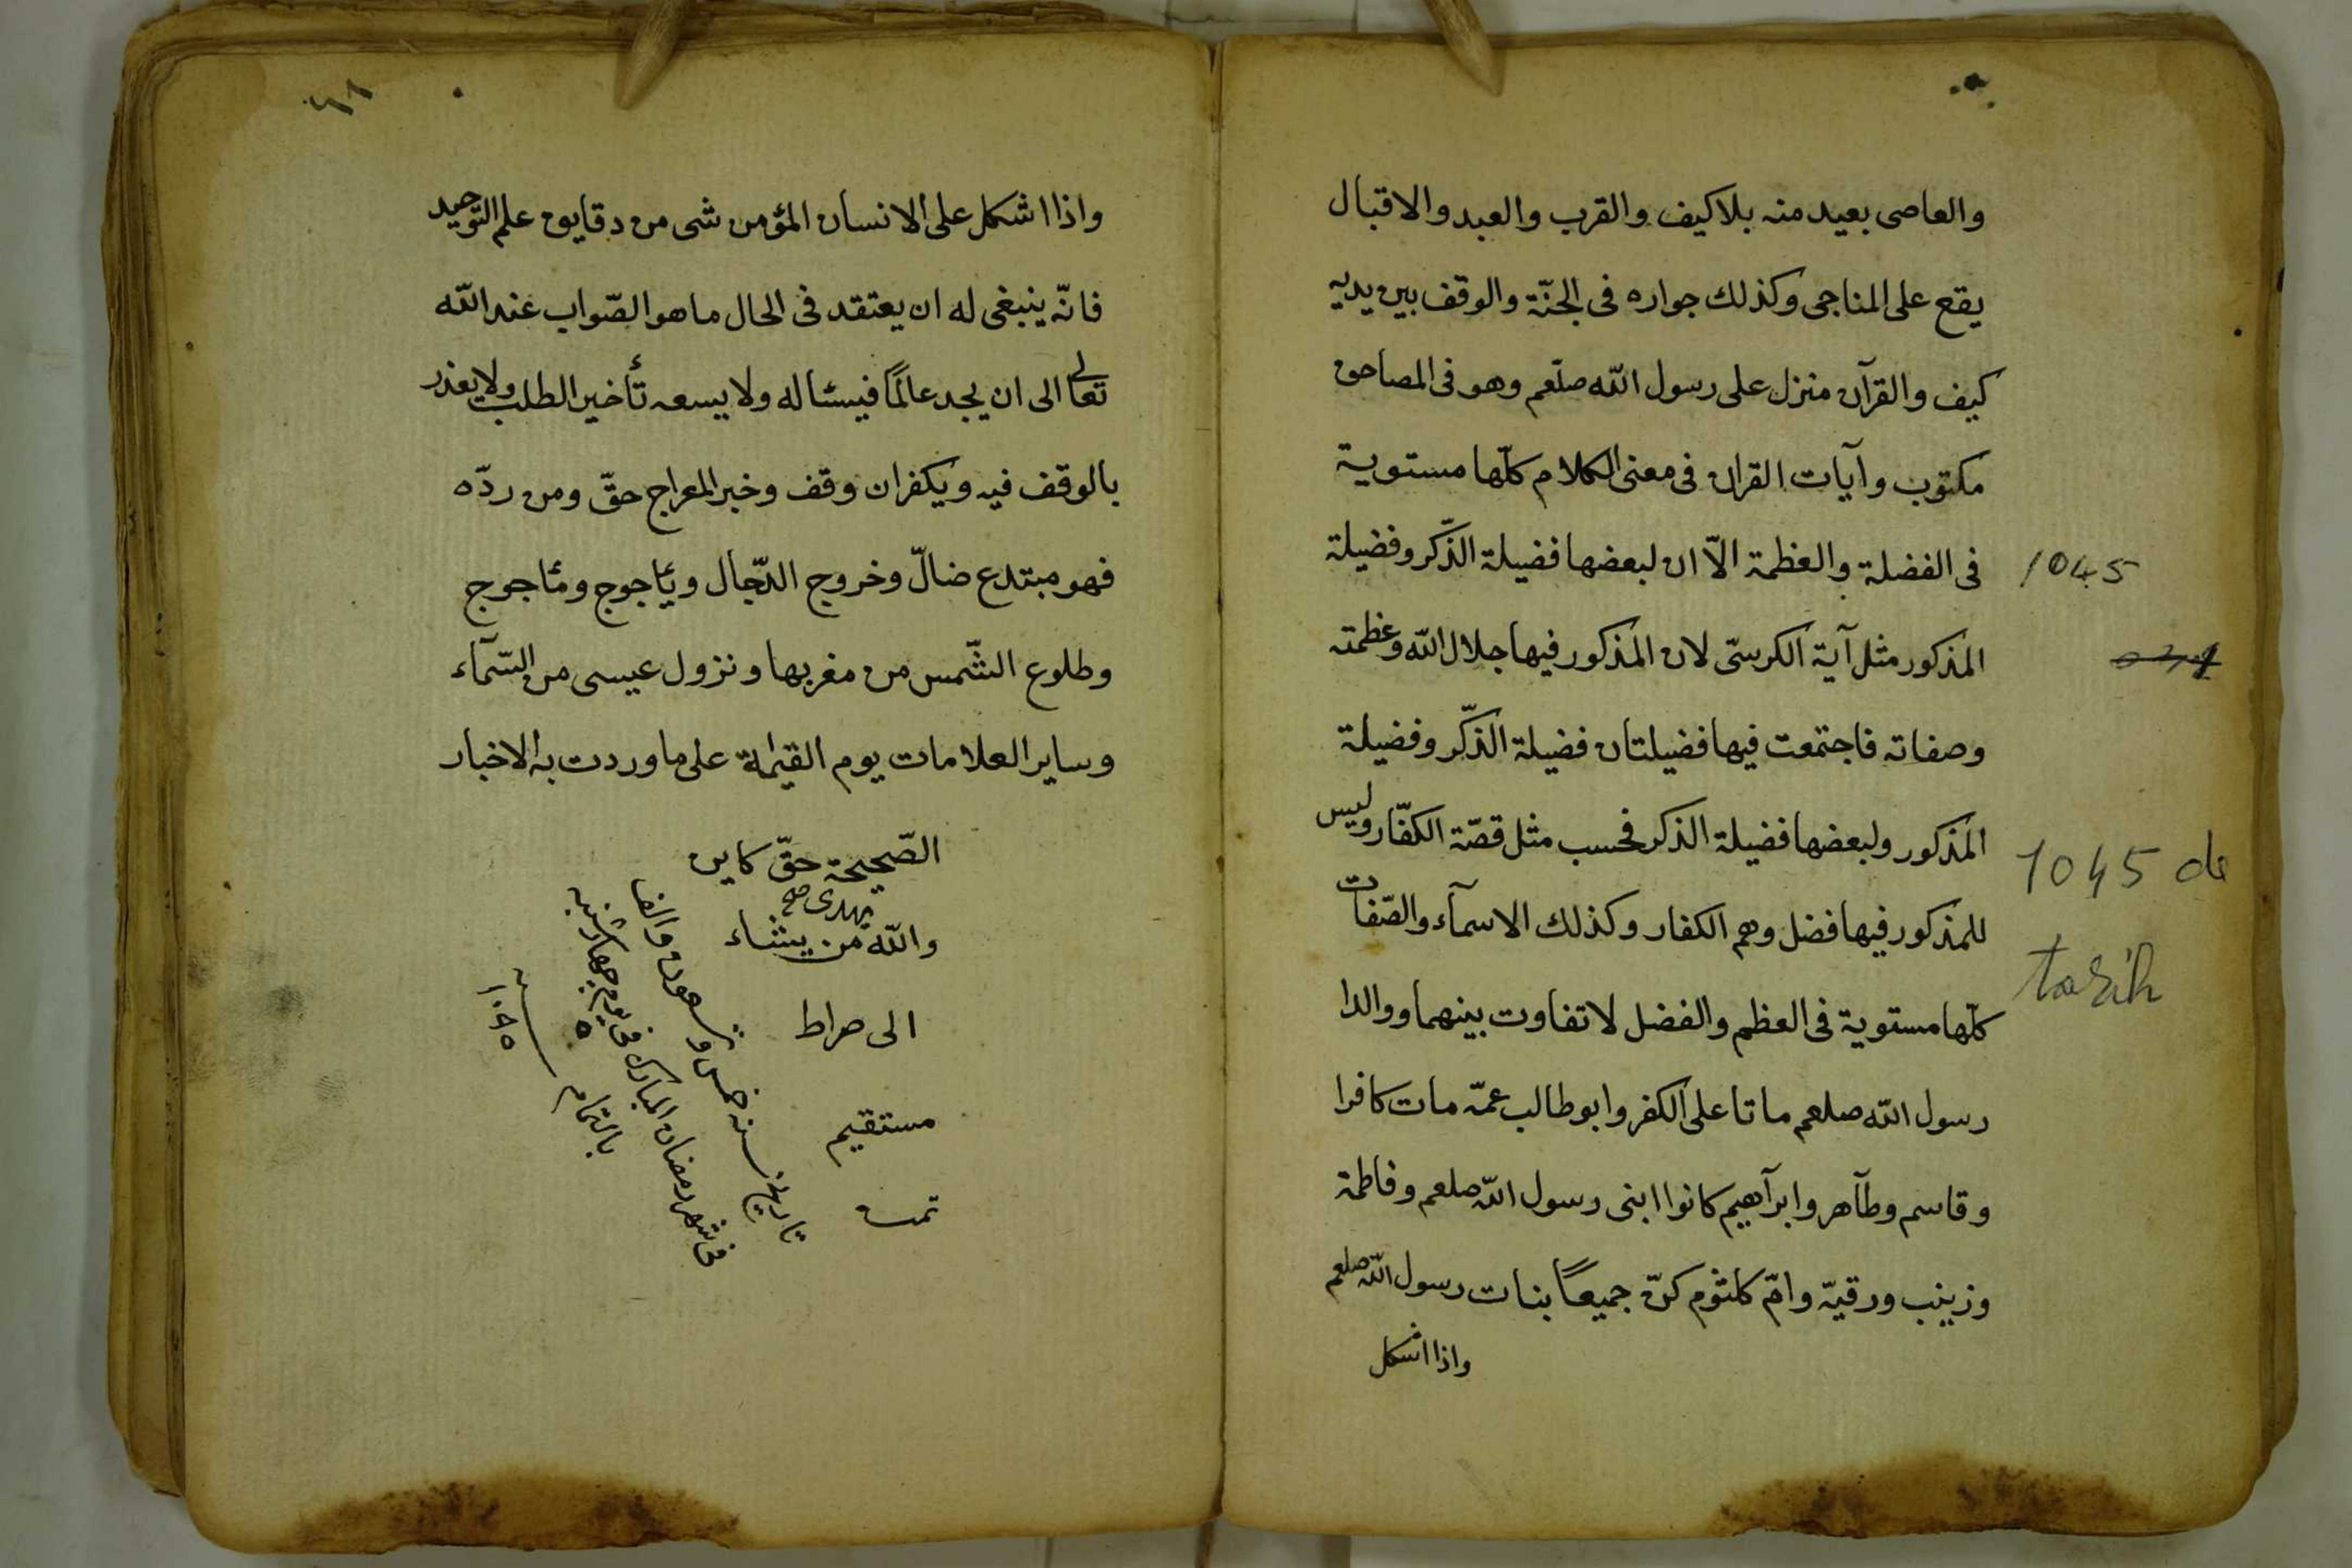 والعاصی بعید منه بلا کیف والقرب والعبد والاقبال
یقع علی المناجی وکذلك جواره فی الجنّة والوقف بین یدیه
کیف والقرآن منزل علی رسول اللّه صلّعم وهو فی المصاحف
مکتوب وآیات القران فی معنی الکلام کلّها مستویة
فی الفضلة والعظمة الاّ ان لبعضها فضیلة الذّکر وفضیلة
1045
المذکور مثل آیة الکرسّی لان المذکور فیها جلال اللّه وعظمته
وصفاته فاجتمعت فیها فضیلتان فضیلة الذّکر وفضیلة
المذکور ولبعضها فضیلة الذکر فحسب مثل قصّة الکفّار ولیس
1045 de
للمذکور فیها فضل وهم الکفار وکذلك الاسمآء والصّفات
tarih
کلّها مستویة فی العظم والفضل لا تفاوت بینهما ووالدا
رسول اللّه صلعم ماتا علی الکفر وابو طالب عمّه مات کافرا
وقاسم وطآهر وابرآهیم کانوا ابنی رسول اللّه صلعم وفاطمة
وزینب ورقیّه وامّ کلثوم کنّ جمیعاً بنات رسول اللّه صلعم
واذا اشکل
واذا اشکل علی الانسان المؤمن شی من دقایق علم التّوحید
فانّه ینبغی له ان یعتقد فی الحال ما هو الصّواب عند اللّه
تعالی الی ان یجد عالمًا فیسئاله ولا یسعه تأخیر الطلب ولا یعذر
بالوقف فیه ویکفر ان وقف وخبر المعراج حقّ ومن ردّه
فهو مبتدع ضالّ وخروج الدّجال ویٔاجوج ومٔاجوج
وطلوع الشّمس من مغربها ونزول عیسی من السّمآء
وسایر العلامات یوم القیٰمة علی ما وردت به الاخبار
الصّحیحة حقّ کاین
یهدی صح
واللّه من یشاء
الی صراط
مستقیم
تمت
تاریخ سنه خمس و تسعون والف
فی شهر رمضان المبارك فی یوم چهارشنبه
بالتمام
سنه ١٠٩٥